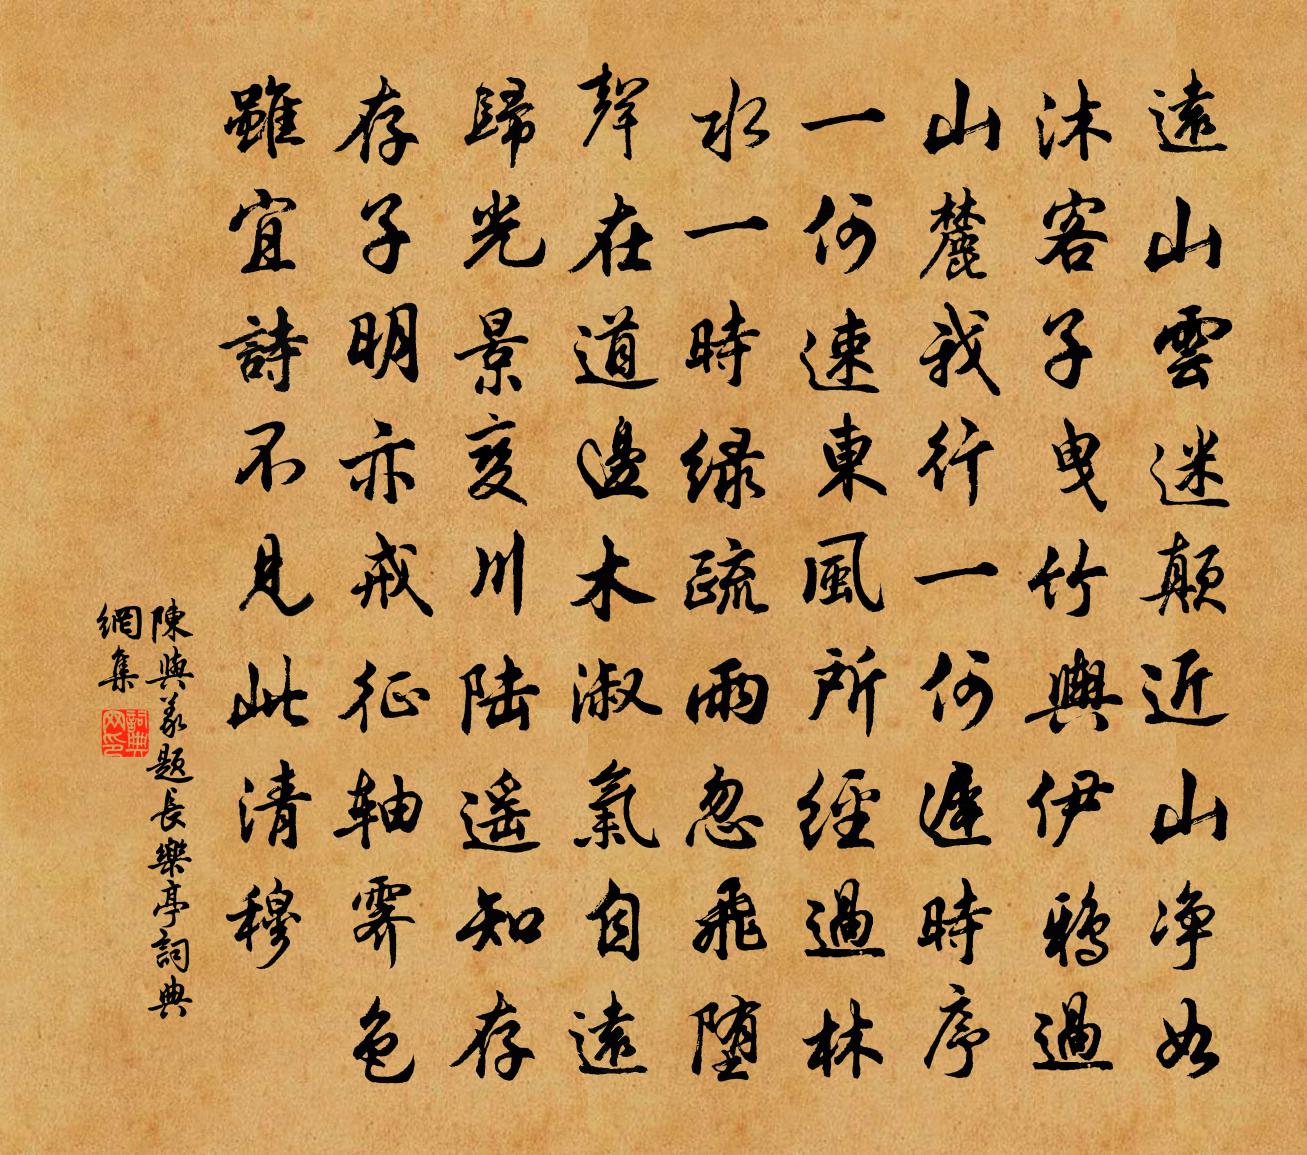 遠山雲迷顛近山净如
沐客子曳竹輿伊鴉過
山麓我行一何遲時序
一何速東風所經過林
水一時緑疏雨忽飛堕
聲在道邊木淑氣自遠
歸光景變川陸遥知存
存子明亦戒征軸霽色
雖宜詩不見此清穆
陳與義题長樂亭詞典
網集
詞典网印